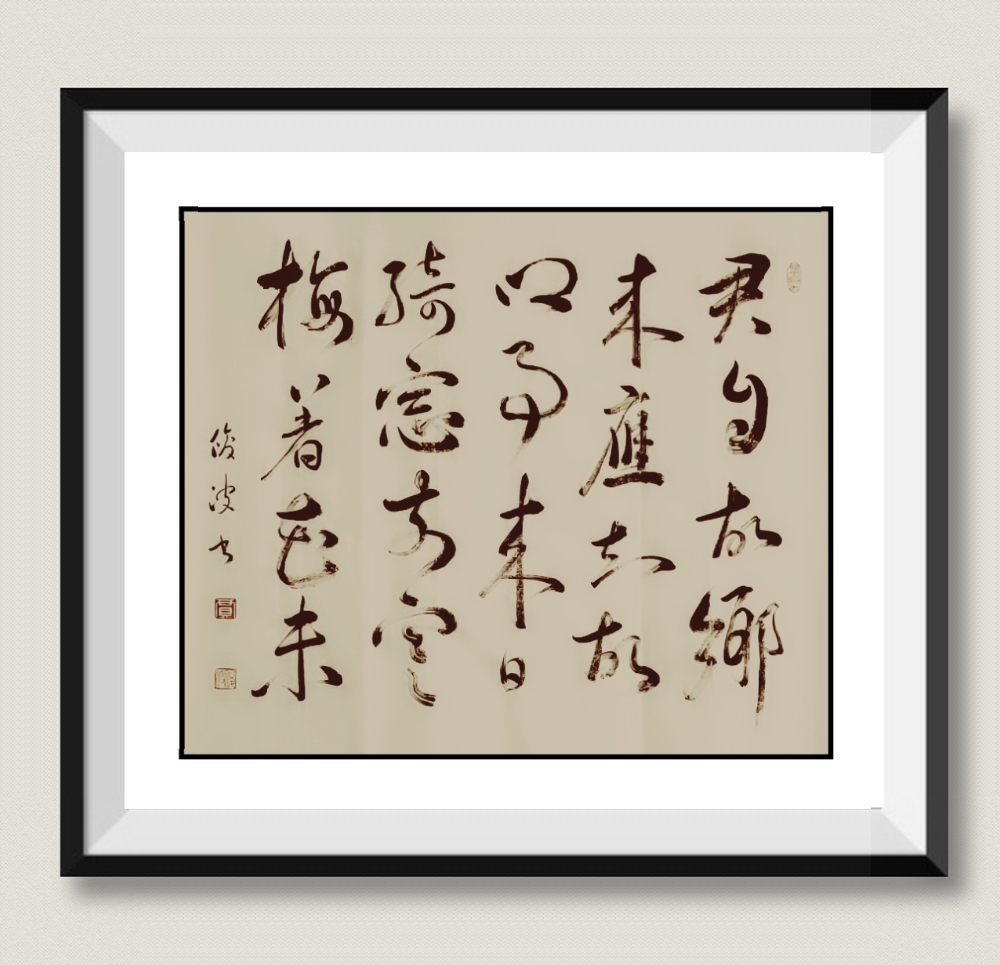 君自故鄉
来應知故
鄉事来日
綺窗前寒
梅着花未
俊波书